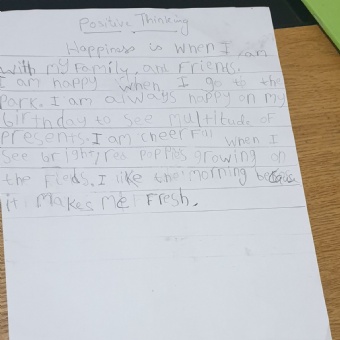 Positive Thinking
Happiness is when I am
with my Family, and Friends.
I am happy when I go to the
Park. I am always happy on my
birthday to see multitude of
presents. I am cheerful when I
see bright res poppies growing on
the Fieds. I like the morning becaus
it Makes Me Fresh.